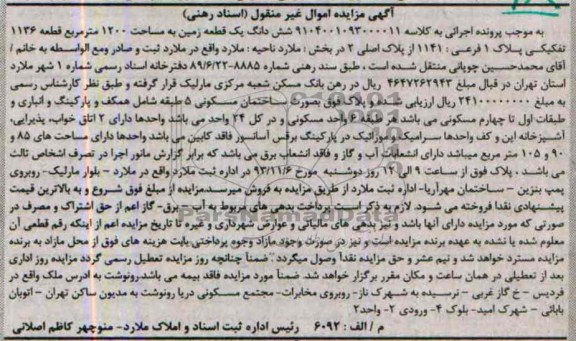 آگهی مزایده اموال غیر منقول (اسناد رهنی)
به موجب پرونده اجرائی به کلاسه ۹۱۰۴۰۰۱۰۹۳۰۰۰۰۱۱ شش دانگ یک قطعه زمین به مساحت ۱۲۰۰ مترمربع قطعه ۱۱۳۶
تفکیکی پلاک ۱ فرعی : ۱۱۴۱ از پلاک اصلی ۲ در بخش : ملارد ناحیه : ملارد واقع در ملارد ثبت و صادر ومع الواسطه به خانم /
آقای محمدحسین چوپانی منتقل شده است ، طبق سند رهنی شماره ۸۸۸۵-۸۹/۶/۲۲ دفترخانه اسناد رسمی شماره ۱ شهر ملارد
استان تهران در قبال مبلغ ۴۶۴۷۲۶۲۹۴۳ ریال در رهن بانک مسکن شعبه مرکزی مارلیک قرار گرفته و طبق نظر کارشناس رسمی
به مبلغ ۲۴۱۰۰۰۰۰۰۰۰ ریال ارزیابی شده و پلاک فوق بصورت ساختمان مسکونی ۵ طبقه شامل همکف و پارکینگ و انباری و
طبقات اول تا چهارم مسکونی می باشد هر طبقه واحد مسکونی و در کل ۲۴ واحد می باشد واحدها دارای ۲ اتاق خواب، پذیرایی،
آشپزخانه اپن و کف واحدها سرامیک و موزائیک در پارکینگ برقس آسانسور فاقد کابین می باشد واحدها دارای مساحت های ۸۵ و
۹۰ و ۱۰۵ متر مربع میباشد دارای انشعابات آب و گاز و فاقد انشعاب برق می باشد که برابر گزارش مامور اجرا در تصرف اشخاص ثالث
می باشد ، پلاک فوق از ساعت ۹ الی ۱۲ روز دوشنبه مورخ ۹۳/۱۱/۶ در اداره ثبت ملارد واقع در ملارد - بلوار مارلیک- روبروی
پمپ بنزین - ساختمان مهرآریا- اداره ثبت ملارد از طریق مزایده به فروش میرسد.مزایده از مبلغ فوق شروع و به بالاترین قیمت
پیشنهادی نقدا فروخته می شود. لازم به ذکر است پرداخت بدهی های مربوط به آب - برق- گاز اعم از حق اشتراک و مصرف در
صورتی که مورد مزایده دارای آنها باشد و نیز بدهی های مالیاتی و عوارض شهرداری و غیره تا تاریخ مزایده اعم از اینکه رقم قطعی آن
معلوم شده یا نشده به عهده برنده مزایده است و نیز در صورت وجود مازاد وجوه پرداختی بابت هزینه های فوق از محل مازاد به برنده
مزایده مسترد خواهد شد و نیم عشر و حق مزایده نقدا وصول میگردد . ضمنا چنانچه روز مزایده تعطیل رسمی گردد مزایده روز اداری
بعد از تعطیلی در همان ساعت و مکان مقرر برگزار خواهد شد. ضمنا مورد مزایده فاقد بیمه می باشد.رونوشت به آدرس ملک واقع در
فردیس - خ گاز غربی - نرسیده به شهرک ناز- روبروی مخابرات- مجتمع مسکونی دریا رونوشت به مدیون ساکن تهران - اتوبان
بابائی - شهرک امید- بلوک ۴- ورودی ۲- واحد۲
م / الف : ۶۰۹۲ رئیس اداره ثبت اسناد و املاک ملارد- منوچهر کاظم اصلانی
ParsNamadData